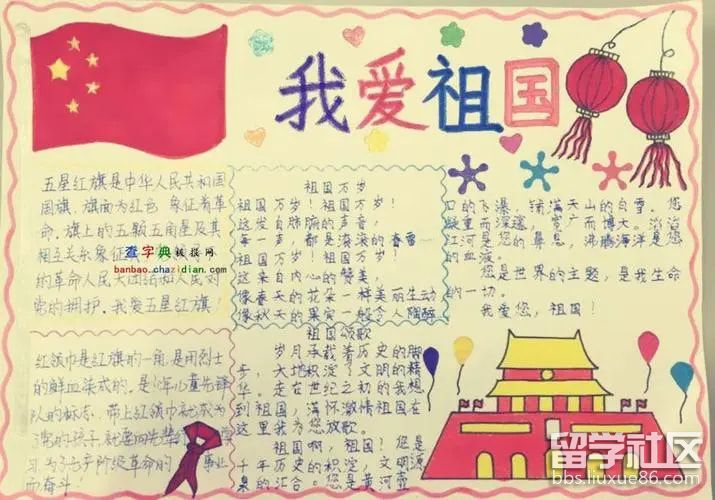 我爱祖国
五星红旗是中华人民共和国
国旗，旗面为红色，象征着革
命，旗上的五颗五角星及其
相互关系象征
的革命人民大团结和人民对
党的拥护，我爱五星红旗！
查字典模板网
banbao.chazidian.com
红领巾是红旗的一角，是用烈士
的鲜血染成的，是少年儿童先锋
队的标志，带上红领巾就成为
了党的孩子，就要向先辈
习为了无产阶级革命的事业
而奋斗！
祖国万岁
祖国万岁！祖国万岁！
这发自肺腑的声音，
每一声，都是滚滚的春雷
祖国万岁！祖国万岁！
这来自内心的赞美，
像春天的花朵一样美丽生动
像秋天的果实一般令人陶醉
祖国颂歌
岁月承载着历史的脚
步，大地积淀了文明的精
华。走在世纪之初的我想
到祖国，满怀激情祖国在
这里我为您放歌。
祖国啊，祖国！您是
十年历史的积淀，文明源
泉的汇合。您是黄河壶
口的飞瀑，铺满天山的白雪。您
凝重而深邃，宽广而博大。滔滔
江河是您的鼻息，沸腾海洋是您
的血液。
您是世界的主题，是我生命
的一切。
我爱您，祖国！
留学社区
bbs.liuxue86.com